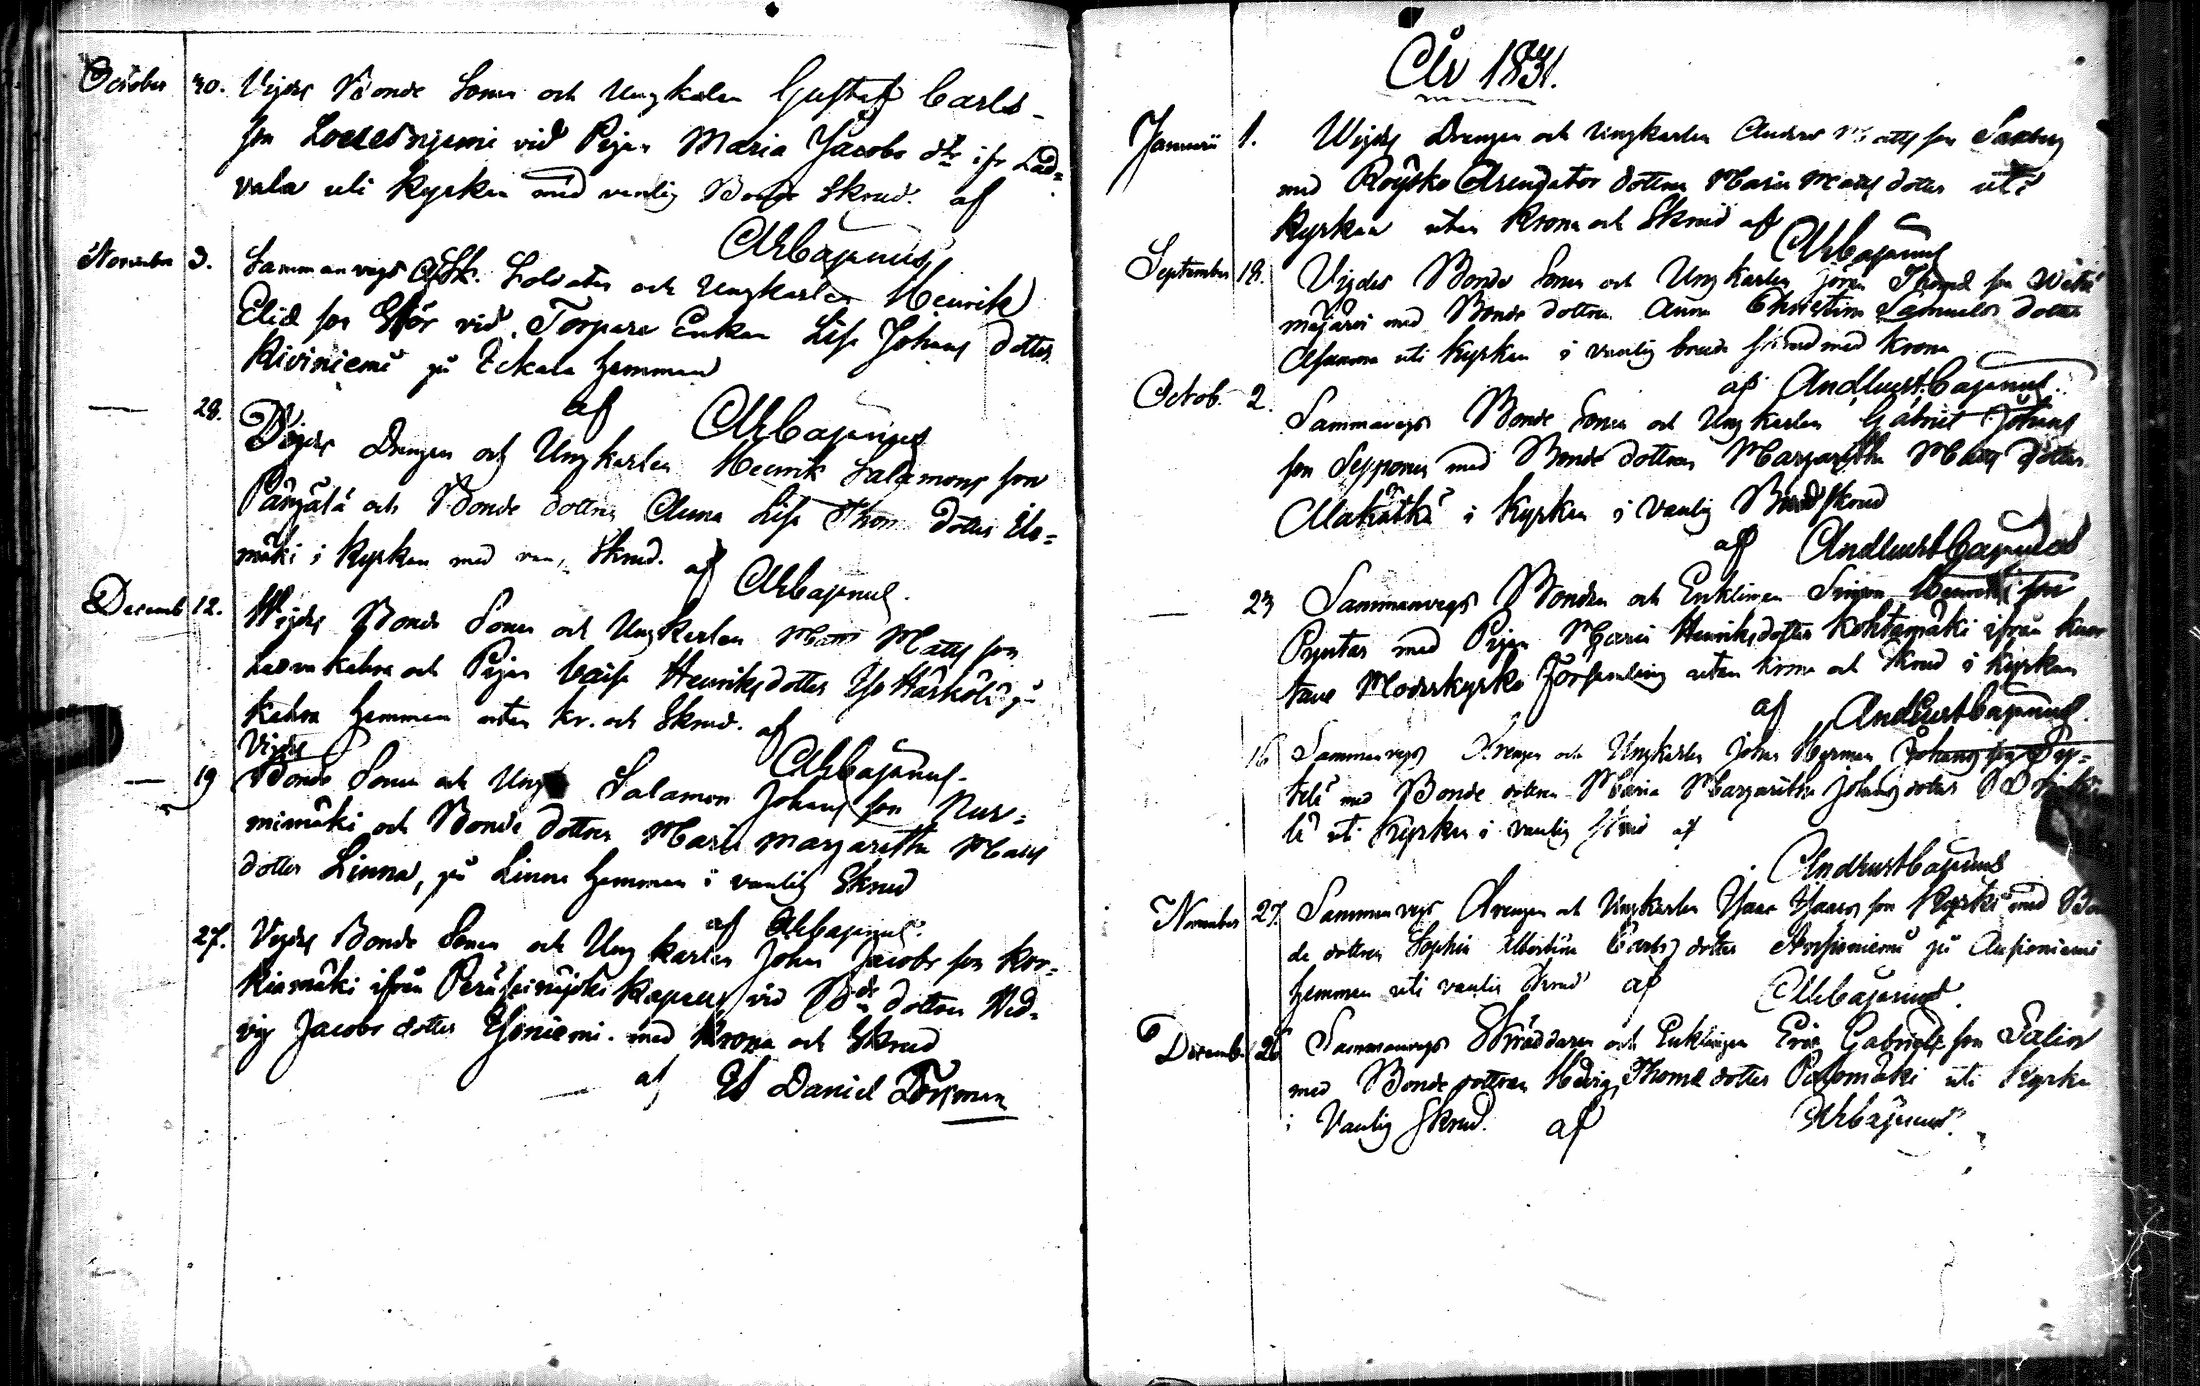 October 30. Vigdes Bonde Sonen och Ungkarlen Gustaf Carls-
son vid Pigan Maria Jacobs dtr ifr Lad=
vala uti Kyrkan med vanlig Skrud. af
ARCajanus
November 3. Sammanvigds Afsk. Soldaten och Ungkarlen Henrik
Elias son Stör vid Torpare Enkan Lisa Johans dotter
Kiviniemi på Eckala hemman
af ARCajanus
— 28. Vigdes Drengen och Ungkarlen Henrik Salomons son
och Bonde dottren Anna Lisa Thom. dotter Ilo=
mäki i Kyrkan med van. Skrud. af ARCajanus.
Decemb. 12. Vigdes Bonde Sonen och Ungkarlen Matts Matts son
och Pigan Caisa Henriks dotter Härkölä på
Kahra hemman utan kr. och Skrud. af
ARCajanus.
Vigdes
— 19 Bonde Sonen och Ung Salamon Johans son Nur=
mimäki och Bonde dottren Maria Margaretha Matts
dotter Linna, på Linna hemman i vanlig Skrud
af ARCajanus.
27. Vigdes Bonde Sonen och Ungkarlen Johan Jacobs son Kor=
kiamäki ifrån Peräseinäjoki Kapell, vid Bde dottren Hed=
vig Jacobs dotter Yliniemi. med Krona och Skrud
af Daniel Forsman
År 1831.
Januarii 1. Wigdes Drengen och Ungkarlen Anders Matts son Saxberg
med Röyskö Arendator dottren Maria Matts dotter uti
Kyrkan utan Krona och Skrud af
ARCajanus
September 18. Vigdes Bonde Sonen och Ungkarlen Jöran Thomas son
med Bonde dottren Anna Christina Samuels dotter
Asunma uti Kyrkan i vanlig brude skrud med krona
af AndRustCajanus.
Octob. 2. Sammanvigds Bonde Sonen och Ungkarlen Gabriel Johans
son Sepponen med Bonde dottren Margaretha Matts dotter
i Kyrkan i vanlig Brudskrud
af AndRustCajanus
— 23 Sammanvigds Bonden och Enklingen Simon Henriks son
Pyntar med Pigan Maria Henriksdotter Kohtamäki ifrån Kuor
tane Moderkyrko Församling utan krona och skrud i Kyrkan
af AndRustCajanus.
16 Sammanvigds Drengen och Ungkarlen Johan Herman Johans son Sep=
telä med Bonde dottren Maria Margaretha Johans dotter
lä uti Kyrkan i vanlig skrud af
AndRustCajanus
November 27. Sammanvigds Drengen och Ungkarlen Isaac Isaacs son med Bon
de dottren Sophia Albertina Carls dotter på
hemman uti vanlig skrud af ARCajanus.
Decemb. 26 Sammanvigds Skräddaren och Enklingen Eric Gabriels son Salin
med Bonde dottren Hedvig Thomas dotter Palomäki uti Kyrkan
i Vanlig Skrud. af ARCajanus.